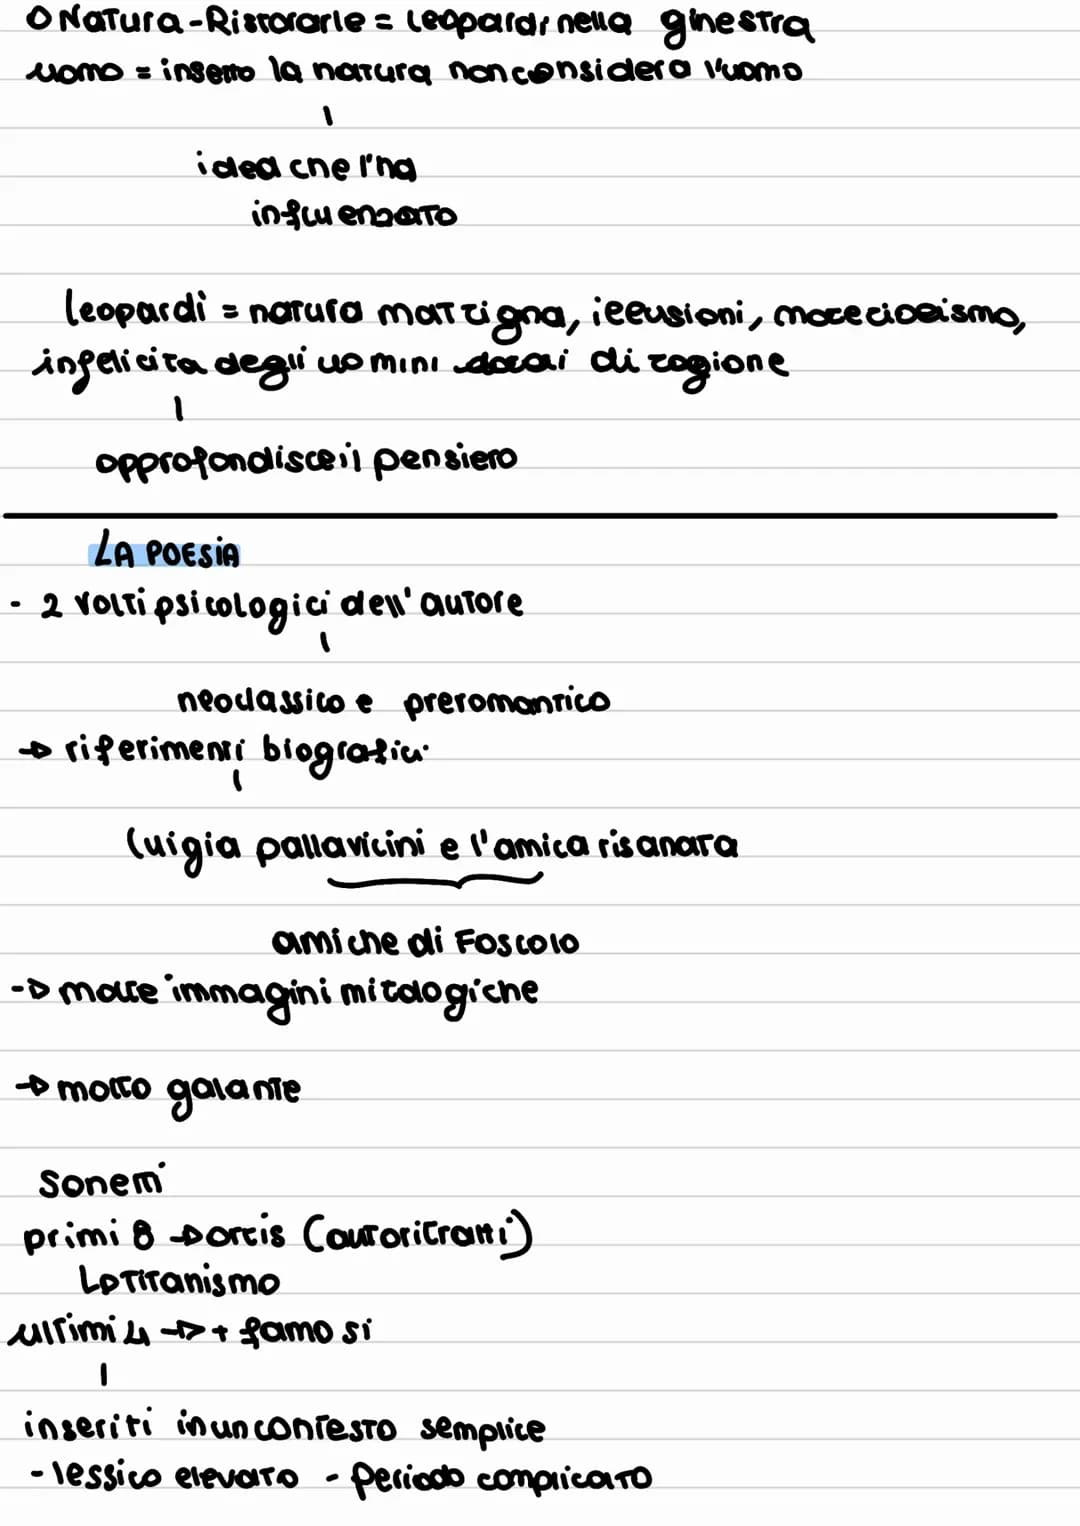 O Natura-Ristorarle = Leopardi nella ginestra
uomo = insetto la natura non considera l'uomo
idea che l'ha
influenzato
Leopardi = natura matrigna, illusioni, moteciocismo,
infelicita degli uomini dotai di ragione
approfondisce il pensiero
LA POESIA
- 2 volti psicologici dell'autore
neoclassico e preromantico
→ riferimenti biografici
Luigia pallavicini e l'amica risanata
amiche di Foscolo
-> molte immagini mitologiche
→ molto galante
Sonetti
primi 8 → ortis (autoritratti)
↳ Titanismo
ultimi 4 → + famosi
inseriti in un contesto semplice
- lessico elevato - Periodo complicato